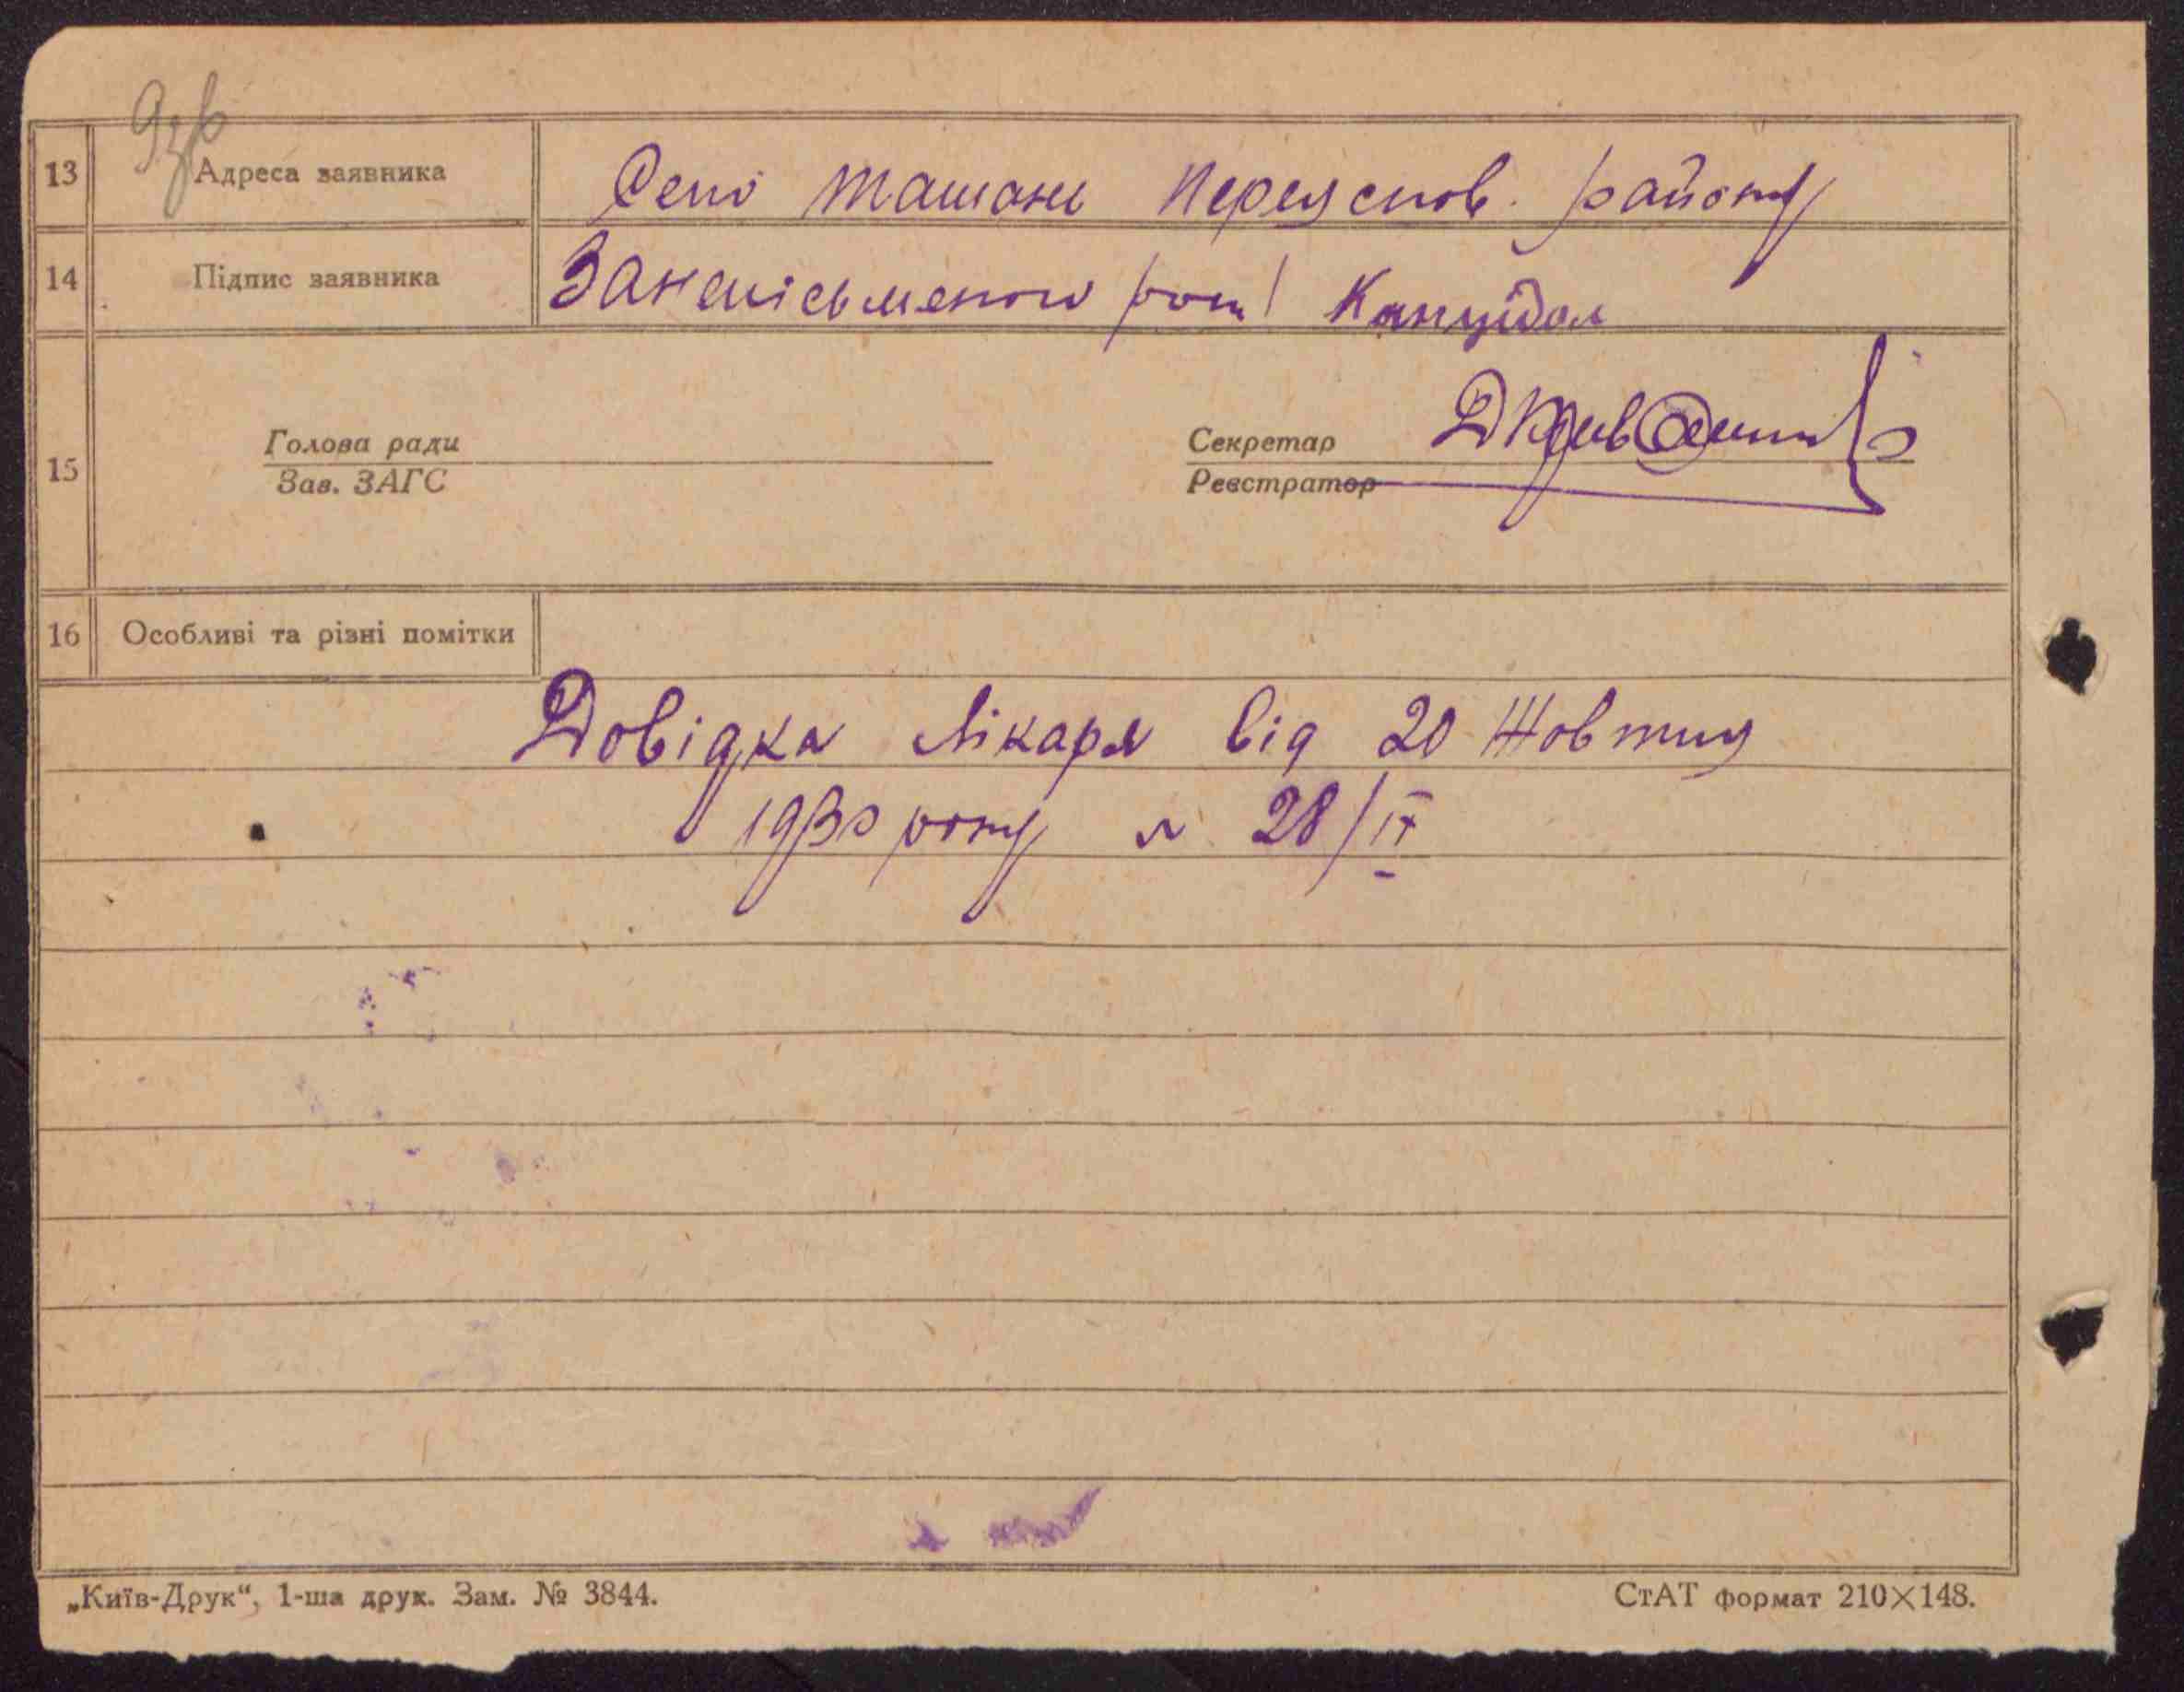 13 Адреса заявника Село Ташань Переяслов. району
14 Підпис заявника За неписьменого
15 Голова ради Секретар
Зав. ЗАГС Реєстратор
16 Особливі та різні помітки
Довідка Лікаря від 20 Жовтня
1930 року № 28/IX
„Київ-Друк“, 1-ша друк. Зам. № 3844. СтАТ формат 210×148.